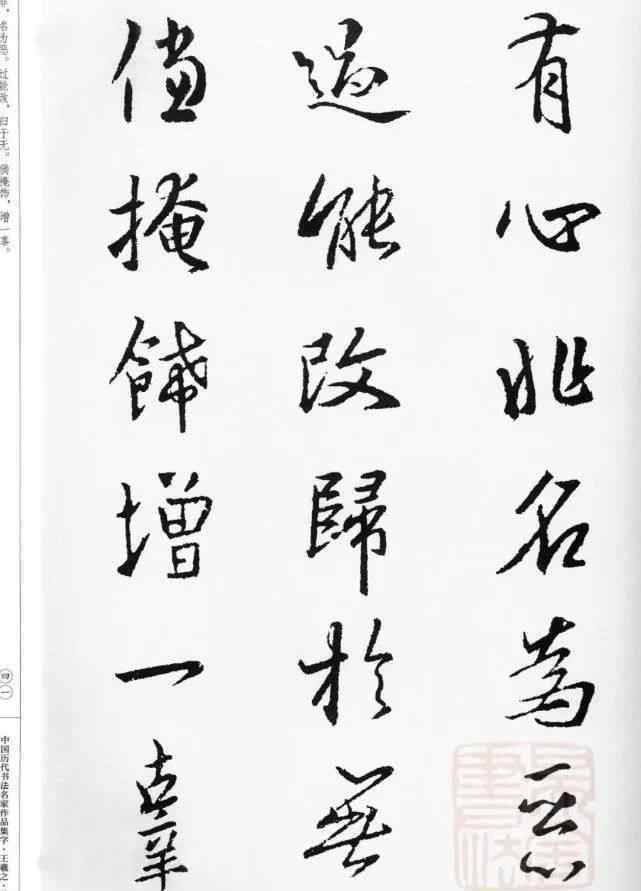 有心非名為惡
過能改歸於無
倘掩飾增一辜
非，名为恶。过能改，归于无。倘掩饰，增一辜。
四一
中国历代书法名家作品集字·王羲之·